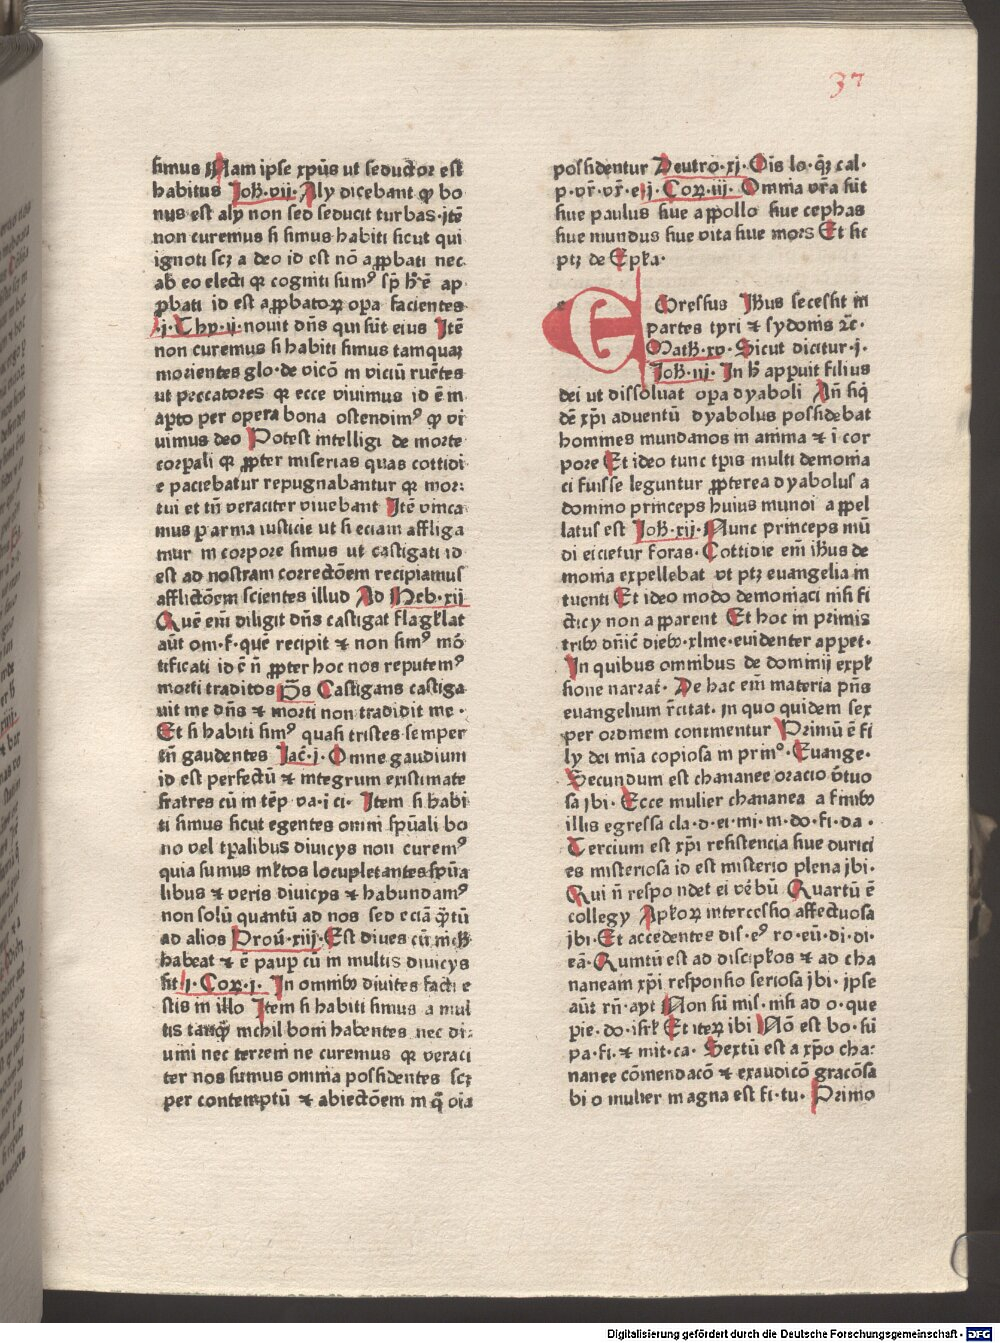 37
simus Nam ipse xpūs ut seductor est
habitus Joh̄·vii· Aly dicebant ꝙ bo
nus est aly non sed seducit turbas·itē
non curemus si simus habiti sicut qui
ignoti scꝫ a deo id est nō aꝓpbati nec
ab eo electi qꝛ cogniti sumꝰ sp̄ h̄ ē ap
ꝓbati id est aꝓpbatoꝝ opa facientes
·ij·Thy·ij·nouit dn̄s qui sūt eius Itē
non curemus si habiti simus tamquaꝫ
morientes glo·de vicō in viciū ruētes
ut peccatores qꝛ ecce viuimus id ē in
apto per opera bona ostendimꝰ ꝙ vi
uimus deo Potest intelligi de morte
corpali qꝛ ꝓpter miserias quas cottidi
e paciebatur repugnabantur qꝛ mor:
tui et tn̄ veraciter viuebant Itē vinca
mus p arma iusticie ut si eciam affliga
mur in corpore simus ut castigati id
est ad nostram correctōem recipiamus
afflictōem scientes illud Ad Heb·xii
Quē eīn diligit dn̄s castigat flagełłat
aūt om·f·quē recipit ⁊ non simꝰ mō
tificati id ē n̄ ꝓpter hoc nos reputemꝰ
morti traditos p̄s Castigans castiga
uit me dn̄s ⁊ morti non tradidit me·
Et si habiti simꝰ quasi tristes semper
tn̄ gaudentes Jac̄·j· Omne gaudium
id est perfectū ⁊ integrum existimate
fratres cū in tēp va·i ci· Item si habi
ti simus sicut egentes omni spūali bo
no vel tpalibus diuicys non curemꝰ
quia sumus młtos locupletantes spūa
libus ⁊ veris diuicys ⁊ habundamꝰ
non solū quantū ad nos sed eciā ꝙ̄tū
ad alios Prou̅·xiij·Est diues cū nich̄
habeat ⁊ ē paup cū in multis diuicys
sit ij·Coꝝ·j· In omnibꝫ diuites facti e
stis in illo Item si habiti simus a mul
tis tanꝙ̄ nichil boni habentes nec di:
uini nec terreni ne curemus qꝛ veraci
ter nos sumus omnia possidentes scꝫ
per contemptū ⁊ abiectōem in q̄ oīa
possidentur Deutro·xj·Oīs lo·q̄ꝫ cal·
p·vr̄·vr̄·e j·Coꝝ·iij·Omnia vr̄a sūt
siue paulus siue appollo siue cephas
siue mundus siue vita siue mors Et sic
ptꝫ de Epła·
EGressus Ih̄us secessit in
partes tyri ⁊ sydonis ⁊c̄·
Math̄·xv·Sicut dicitur·j·
Joh̄·iij·In h̄ appuit filius
dei ut dissoluat opa dyaboli An̄ siq̄
dē xp̄i aduentū dyabolus possidebat
homines mundanos in anima ⁊ ī cor
pore Et ideo tunc tpis multi demonia
ci fuisse leguntur ꝓpterea dyabolus a
domino princeps huius mundi appel
latus est Joh̄·xij·Nunc princeps mū
di eicietur foras·Cottidie eīn ih̄us de
monia expellebat vt ptꝫ euangelia in
tuenti Et ideo modo demoniaci nisi fi
cticy non apparent Et hoc in primis
tribꝫ dn̄ic̄ diebꝫ·xlme·euidenter appet·
In quibus omnibus de demonij expł
sione narrat̄·De hac eīn materia pn̄s
euangelium r̄citat·in quo quidem sex
per ordinem continentur Primū ē fi
ly dei mīa copiosa in prinº·Euange·
Secundum est chananee oracio v̄tuo
sa ibi·Ecce mulier chananea a finibꝫ
illis egressa cla·d·ei·mi·m·do·fi·da·
Tercium est xp̄i resistencia siue durici
es misteriosa id est misterio plena ibi·
Qui n̄ respondet ei vēbū Quartū ē
collegy Apłoꝝ intercessio affectuosa
ibi·Et accedentes dis·eꝰ ro·eū·di·di·
eā·Quintū est ad discipłos ⁊ ad cha
naneam xp̄i responsio seriosa ibi·ipse
aūt rn̄·ayt Non sū mis·nisi ad o·que
pie·do·isrł Et iteꝝ ibi Nō est bo·sū
pa·fi·⁊ mit·ca·Sextū est a xp̄o cha:
nanee cōmendacō ⁊ exaudicō gracōsa
bi o mulier magna est fi·tu· Primo
Digitalisierung gefördert durch die Deutsche Forschungsgemeinschaft · DFG